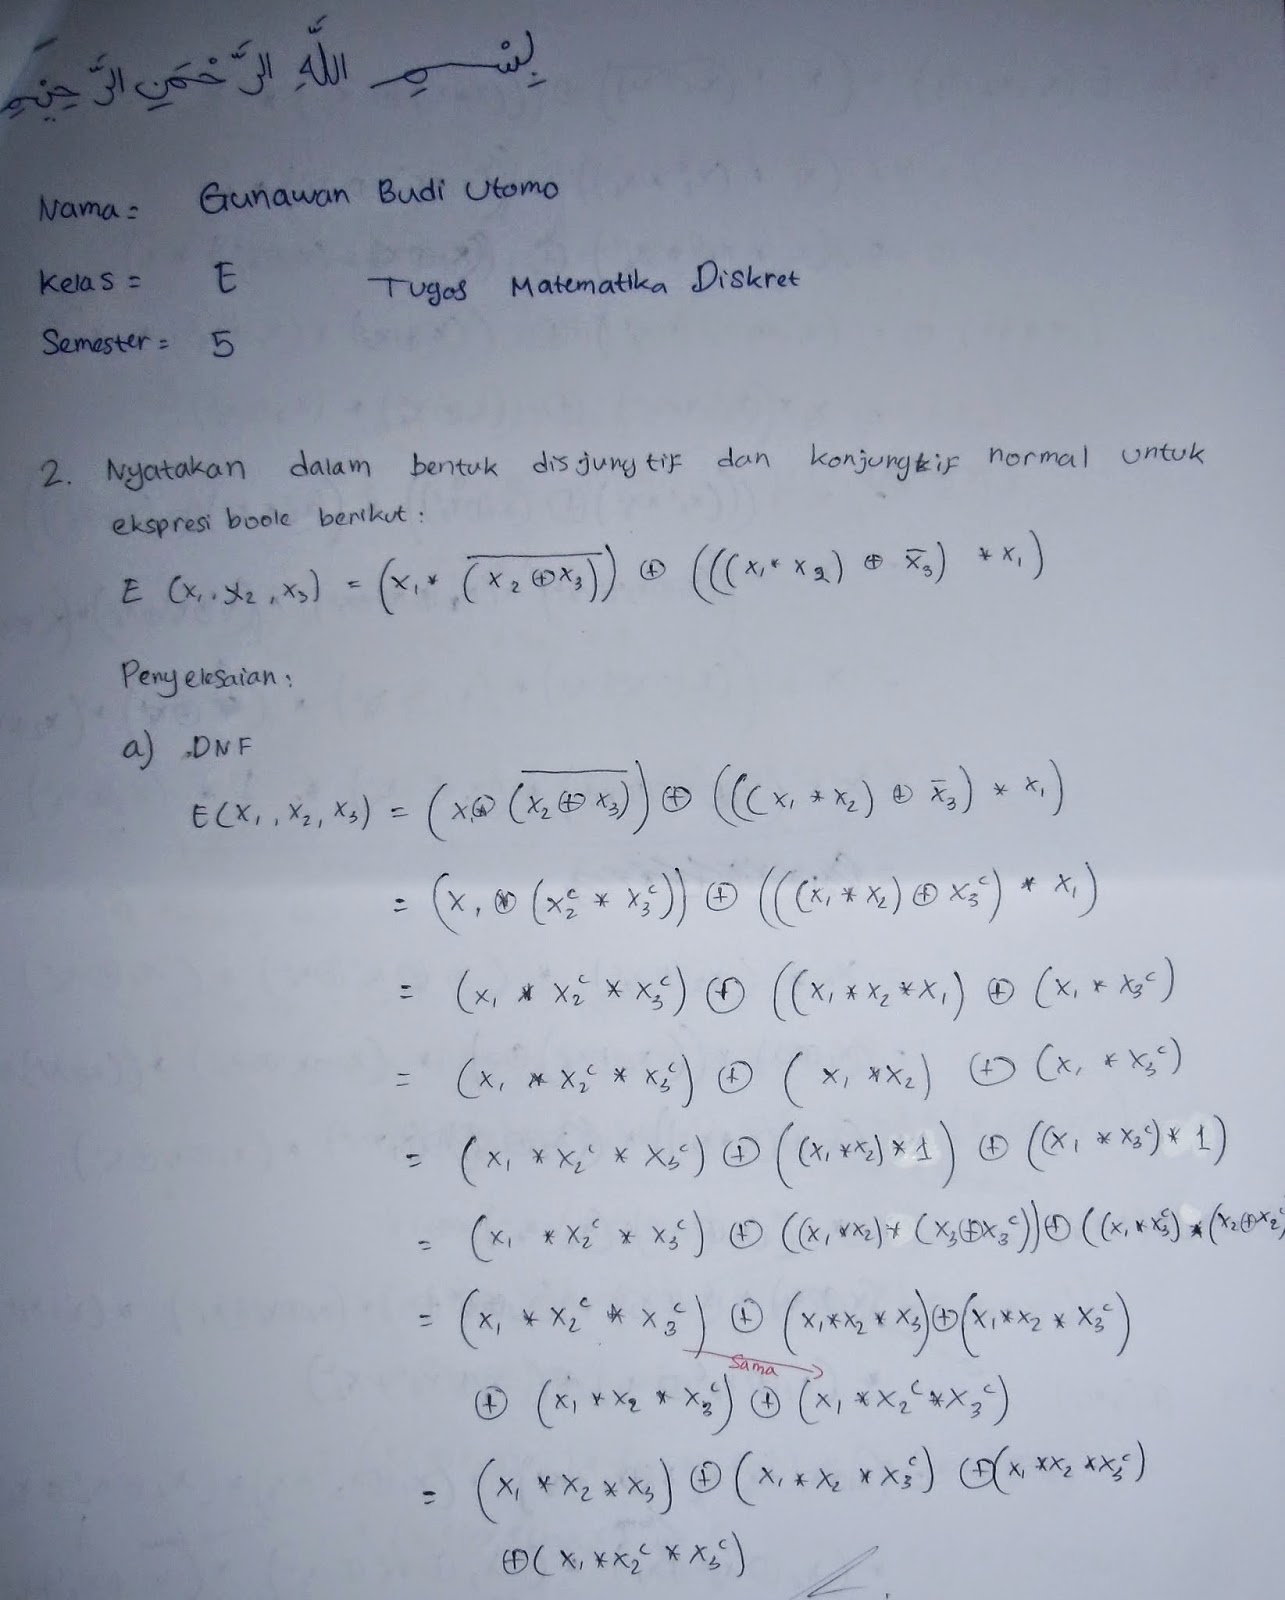 بِسْمِ اللَّهِ الرَّحْمَنِ الرَّحِيْمِ
Nama = Gunawan Budi Utomo
Kelas = E Tugas Matematika Diskret
Semester = 5
2. Nyatakan dalam bentuk disjungtif dan konjungtif normal untuk
ekspresi boole berikut :
E (x₁, x₂, x₃) = (x₁ * \overline{(x₂ ⊕ x₃)}) ⊕ (((x₁ * x₂) ⊕ x̄₃) * x₁)
Penyelesaian :
a) DNF
E(x₁, x₂, x₃) = (x₁ * \overline{(x₂ ⊕ x₃)}) ⊕ (((x₁ * x₂) ⊕ x̄₃) * x₁)
= (x₁ * (x₂ᶜ * x₃ᶜ)) ⊕ (((x₁ * x₂) ⊕ x₃ᶜ) * x₁)
= (x₁ * x₂ᶜ * x₃ᶜ) ⊕ ((x₁ * x₂ * x₁) ⊕ (x₁ * x₃ᶜ)
= (x₁ * x₂ᶜ * x₃ᶜ) ⊕ (x₁ * x₂) ⊕ (x₁ * x₃ᶜ)
= (x₁ * x₂ᶜ * x₃ᶜ) ⊕ ((x₁ * x₂) * 1) ⊕ ((x₁ * x₃ᶜ) * 1)
= (x₁ * x₂ᶜ * x₃ᶜ) ⊕ ((x₁ * x₂) * (x₃ ⊕ x₃ᶜ)) ⊕ ((x₁ * x₃ᶜ) * (x₂ ⊕ x₂ᶜ)
= (x₁ * x₂ᶜ * x₃ᶜ) ⊕ (x₁ * x₂ * x₃) ⊕ (x₁ * x₂ * x₃ᶜ)
Sama
⊕ (x₁ * x₂ * x₃ᶜ) ⊕ (x₁ * x₂ᶜ * x₃ᶜ)
= (x₁ * x₂ * x₃) ⊕ (x₁ * x₂ * x₃ᶜ) ⊕ (x₁ * x₂ * x₃ᶜ)
⊕ (x₁ * x₂ᶜ * x₃ᶜ)